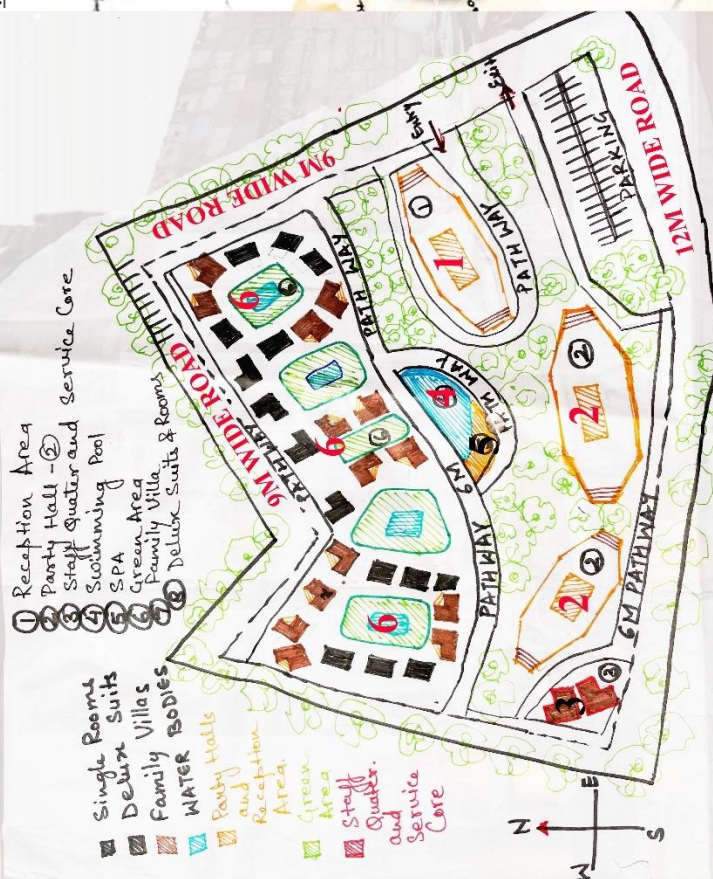 ① Reception Area
② Party Hall - ②
③ Staff Quater and Service Core
④ Swimming Pool
⑤ SPA
⑥ Green Area
⑦ Family Villa
⑧ Delux Suits & Rooms
Single Rooms
Delux Suits
Family Villas
WATER BODIES
Party Halls
and
Reception
Area.
Green
Area
Staff
Quater.
and
Service
Core
9M WIDE ROAD
9M WIDE ROAD
12M WIDE ROAD
PARKING
Entry
Exit
PATH WAY
PATHWAY
PATHWAY
PATH WAY
PATHWAY 6M
6M PATHWAY
①
1
②
2
②
2
3
4
5
6
6
6
N
E
S
W